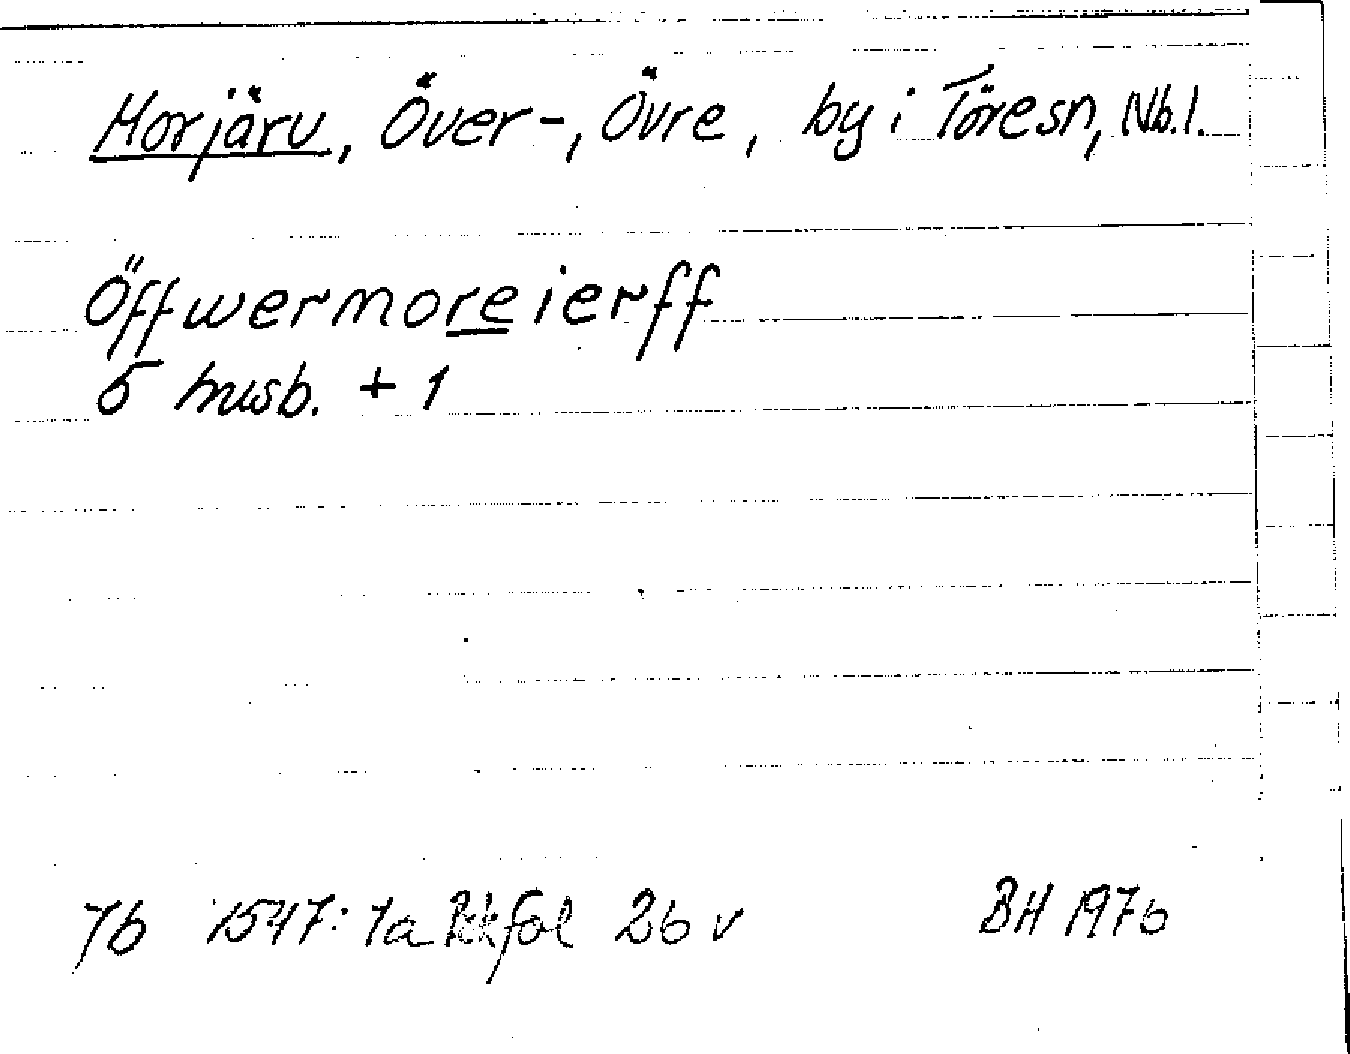 Morjärv, Över-, Övre, by i Töresn, Nb.l.
Öffwermoreierff
5 husb. + 1
Jb 1547:1a Rkfol 26 v BH 1976